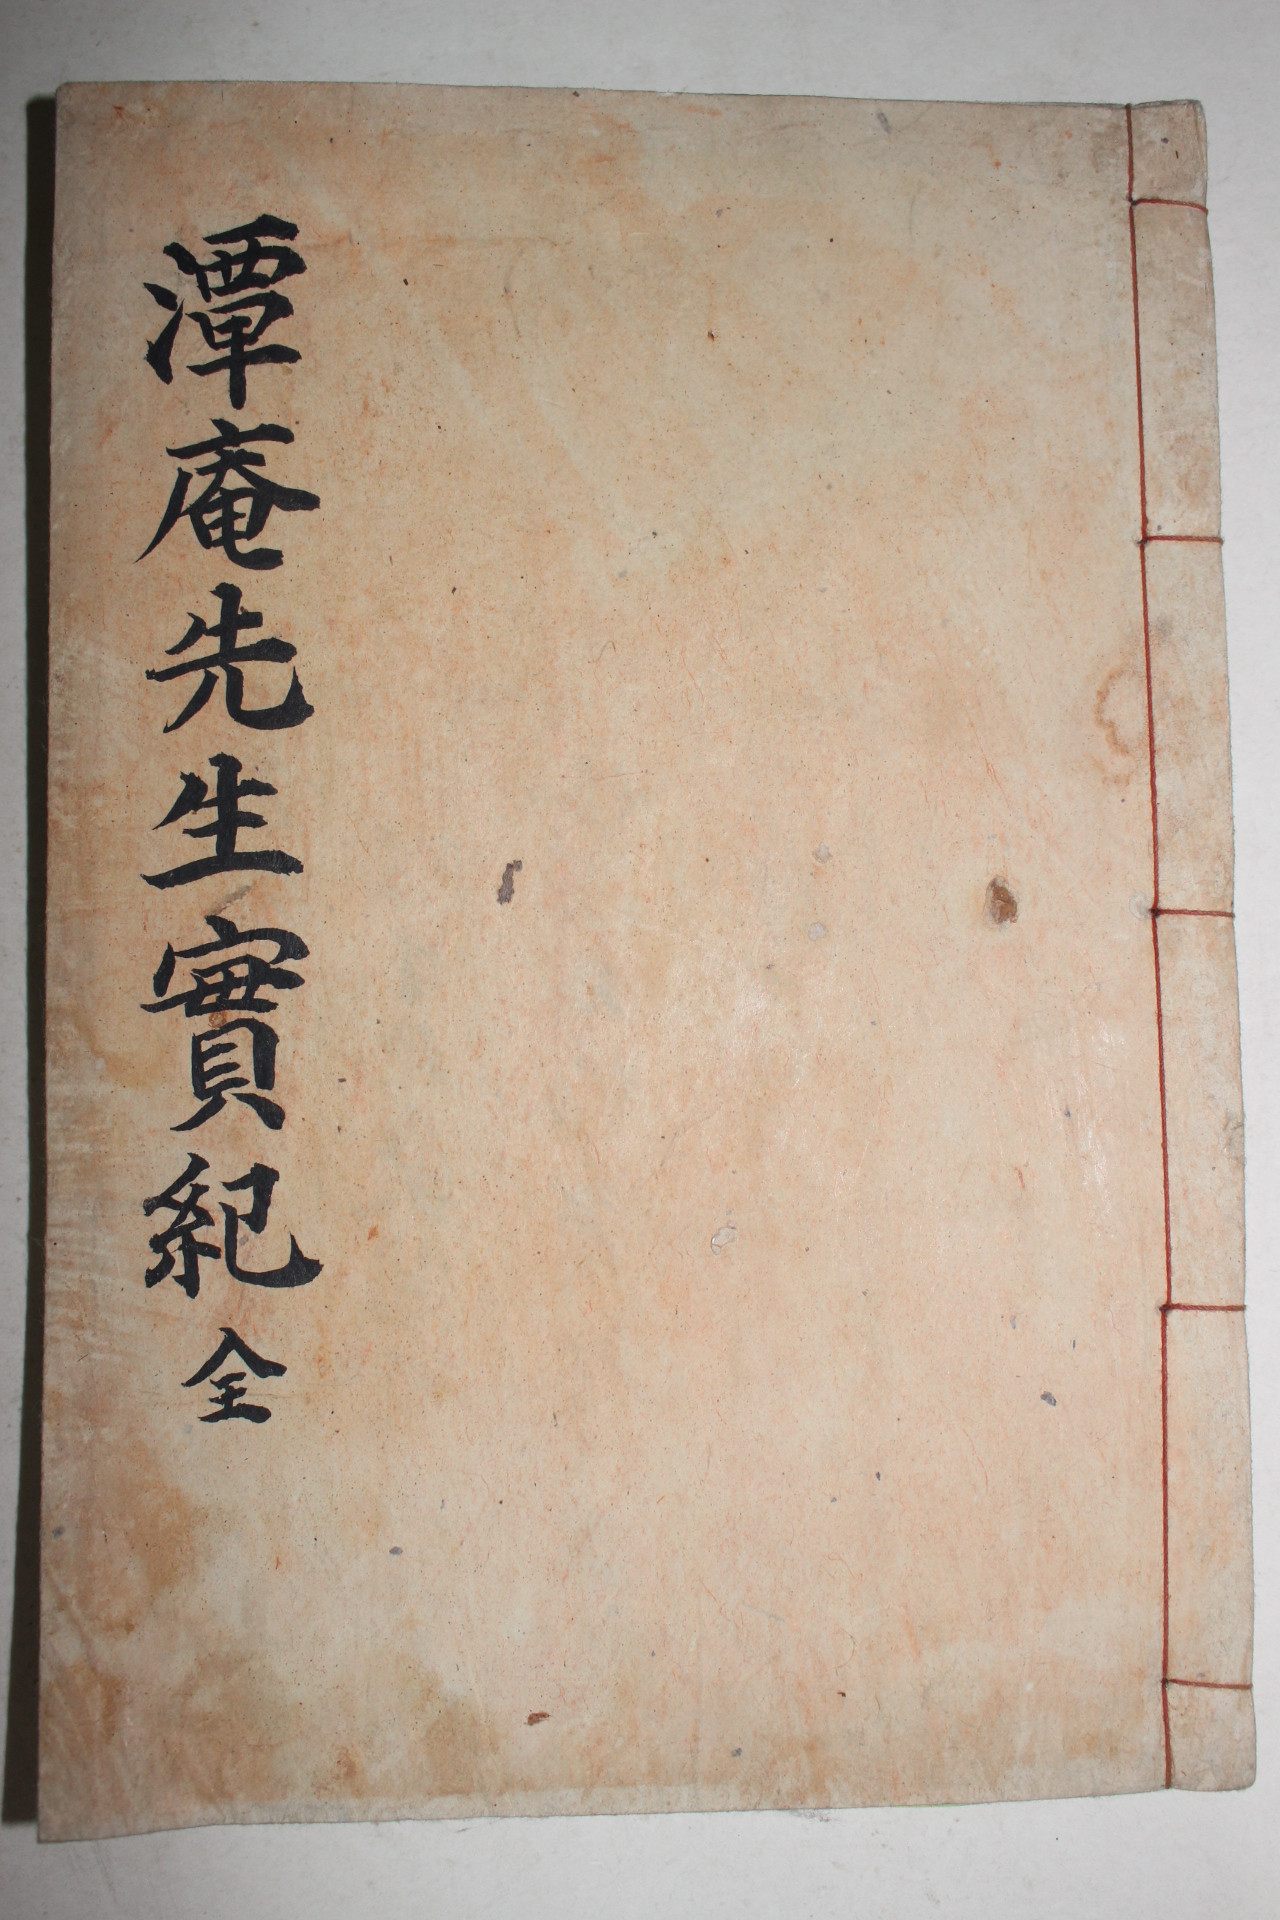 潭庵先生實紀 全